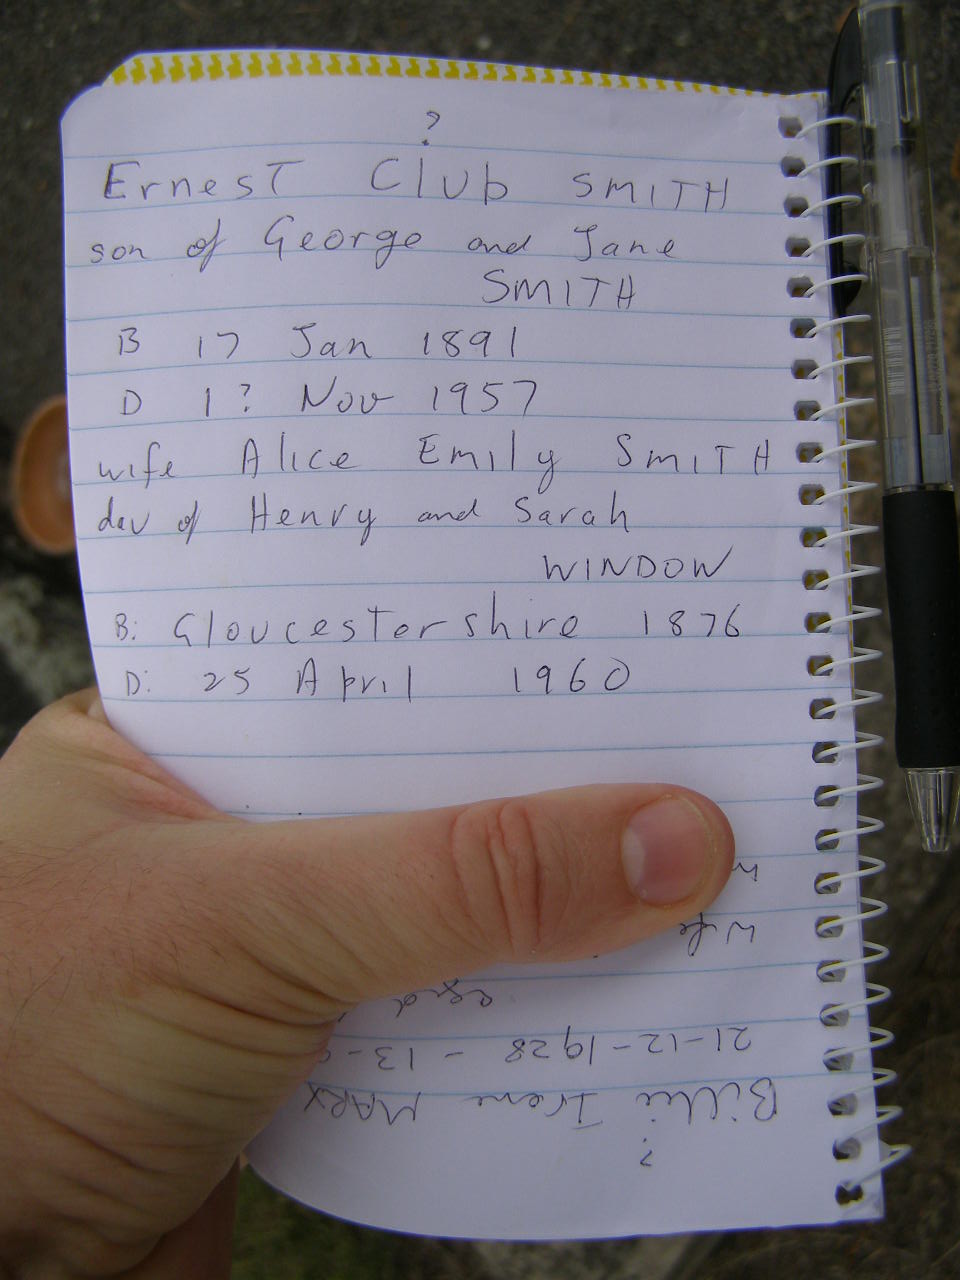 ?
Ernest Club SMITH
son of George and Jane
SMITH
B 17 Jan 1891
D 1? Nov 1957
wife Alice Emily SMITH
dau of Henry and Sarah
WINDOW
B: Gloucestershire 1876
D: 25 April 1960
?
Billie Irene MARX
21-12-1928 - 13-
wife